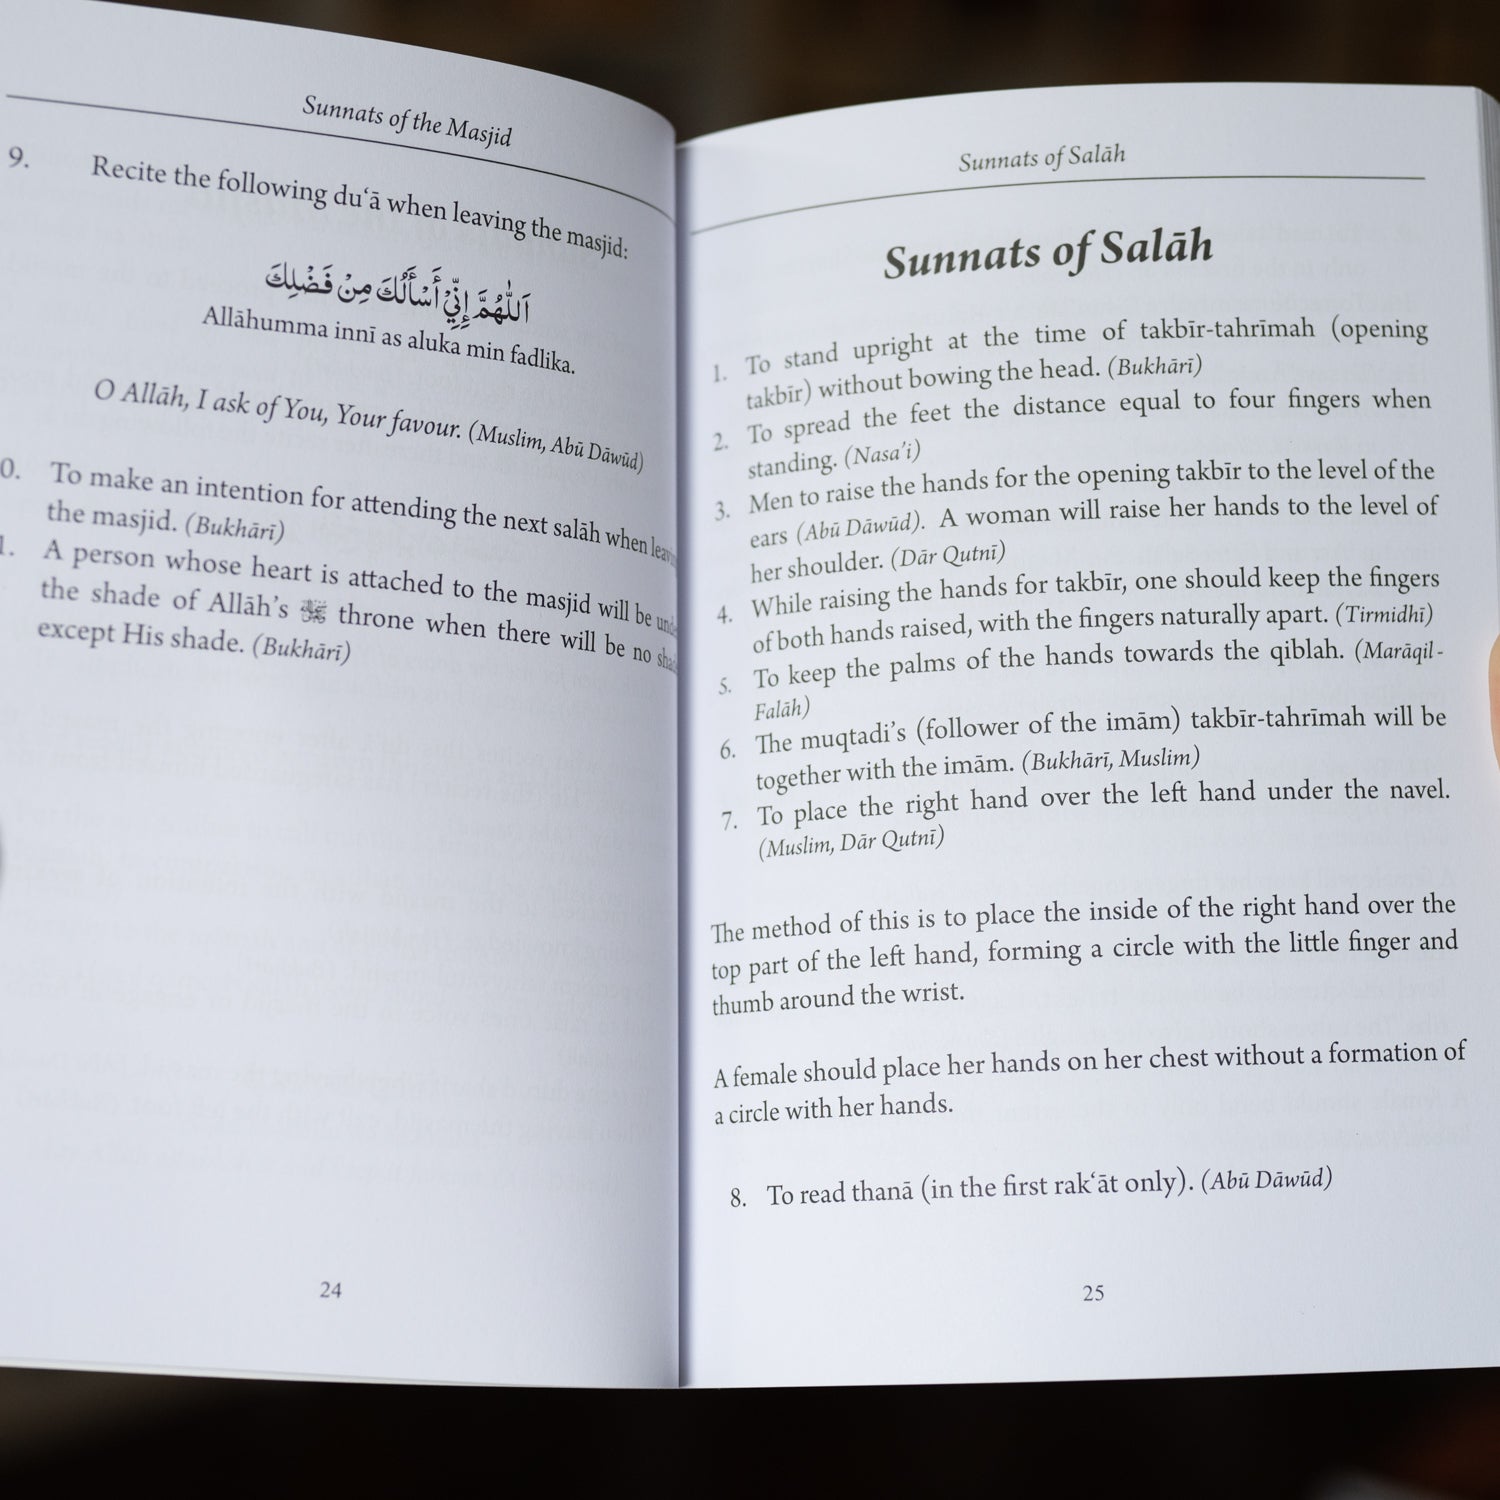 Sunnats of the Masjid
9. Recite the following du‘ā when leaving the masjid:
اَللّٰهُمَّ إِنِّيْ أَسْأَلُكَ مِنْ فَضْلِكَ
Allāhumma innī as aluka min fadlika.
O Allāh, I ask of You, Your favour. (Muslim, Abū Dāwūd)
0. To make an intention for attending the next salāh when
the masjid. (Bukhārī)
1. A person whose heart is attached to the masjid will be
the shade of Allāh’s throne when there will be no
except His shade. (Bukhārī)
24
Sunnats of Salāh
Sunnats of Salāh
1. To stand upright at the time of takbīr-tahrīmah (opening
takbīr) without bowing the head. (Bukhārī)
2. To spread the feet the distance equal to four fingers when
standing. (Nasa’i)
3. Men to raise the hands for the opening takbīr to the level of the
ears (Abū Dāwūd). A woman will raise her hands to the level of
her shoulder. (Dār Qutnī)
4. While raising the hands for takbīr, one should keep the fingers
of both hands raised, with the fingers naturally apart. (Tirmidhī)
5. To keep the palms of the hands towards the qiblah. (Marāqil-
Falāh)
6. The muqtadi’s (follower of the imām) takbīr-tahrīmah will be
together with the imām. (Bukhārī, Muslim)
7. To place the right hand over the left hand under the navel.
(Muslim, Dār Qutnī)
The method of this is to place the inside of the right hand over the
top part of the left hand, forming a circle with the little finger and
thumb around the wrist.
A female should place her hands on her chest without a formation of
a circle with her hands.
8. To read thanā (in the first rak‘āt only). (Abū Dāwūd)
25